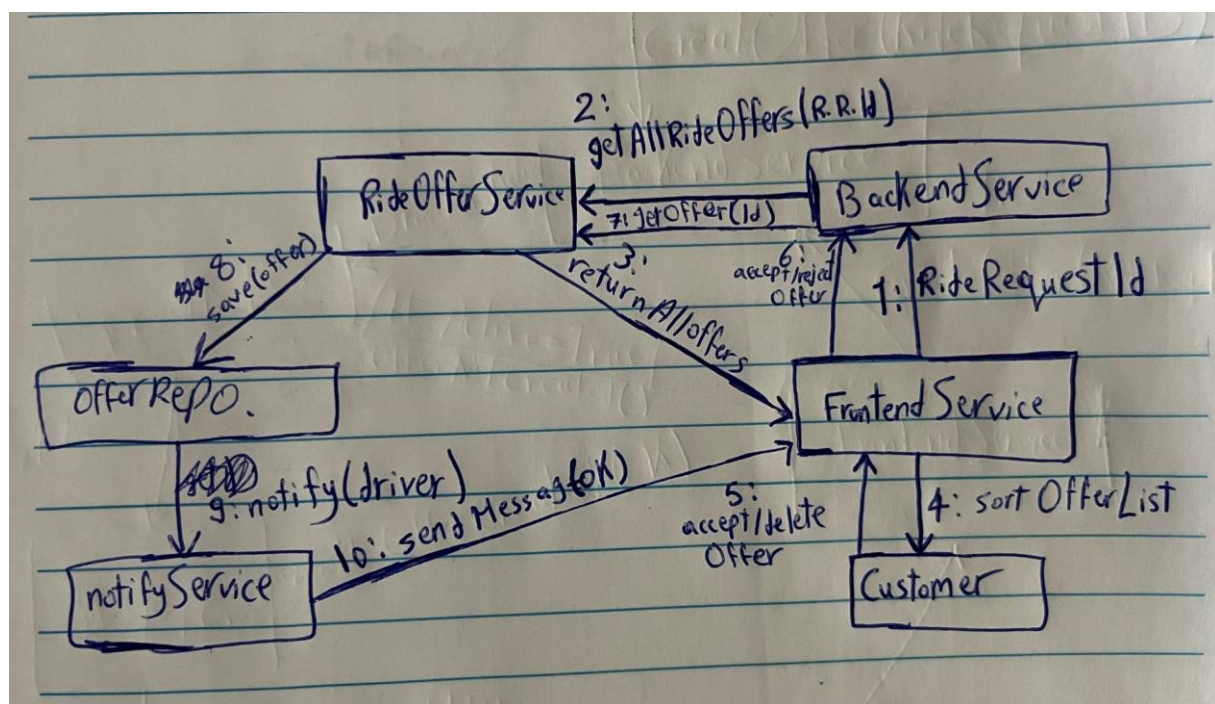 2:
getAllRideOffers(R.R.Id)
RideOfferService
BackendService
7: getOffer(Id)
8:
save(offer)
3:
returnAlloffers
6:
accept/reject
Offer
1: RideRequestId
OfferRepo.
FrontendService
9: notify(driver)
10: sendMessag(OK)
5:
accept/delete
Offer
4: sortOfferList
notifyService
Customer